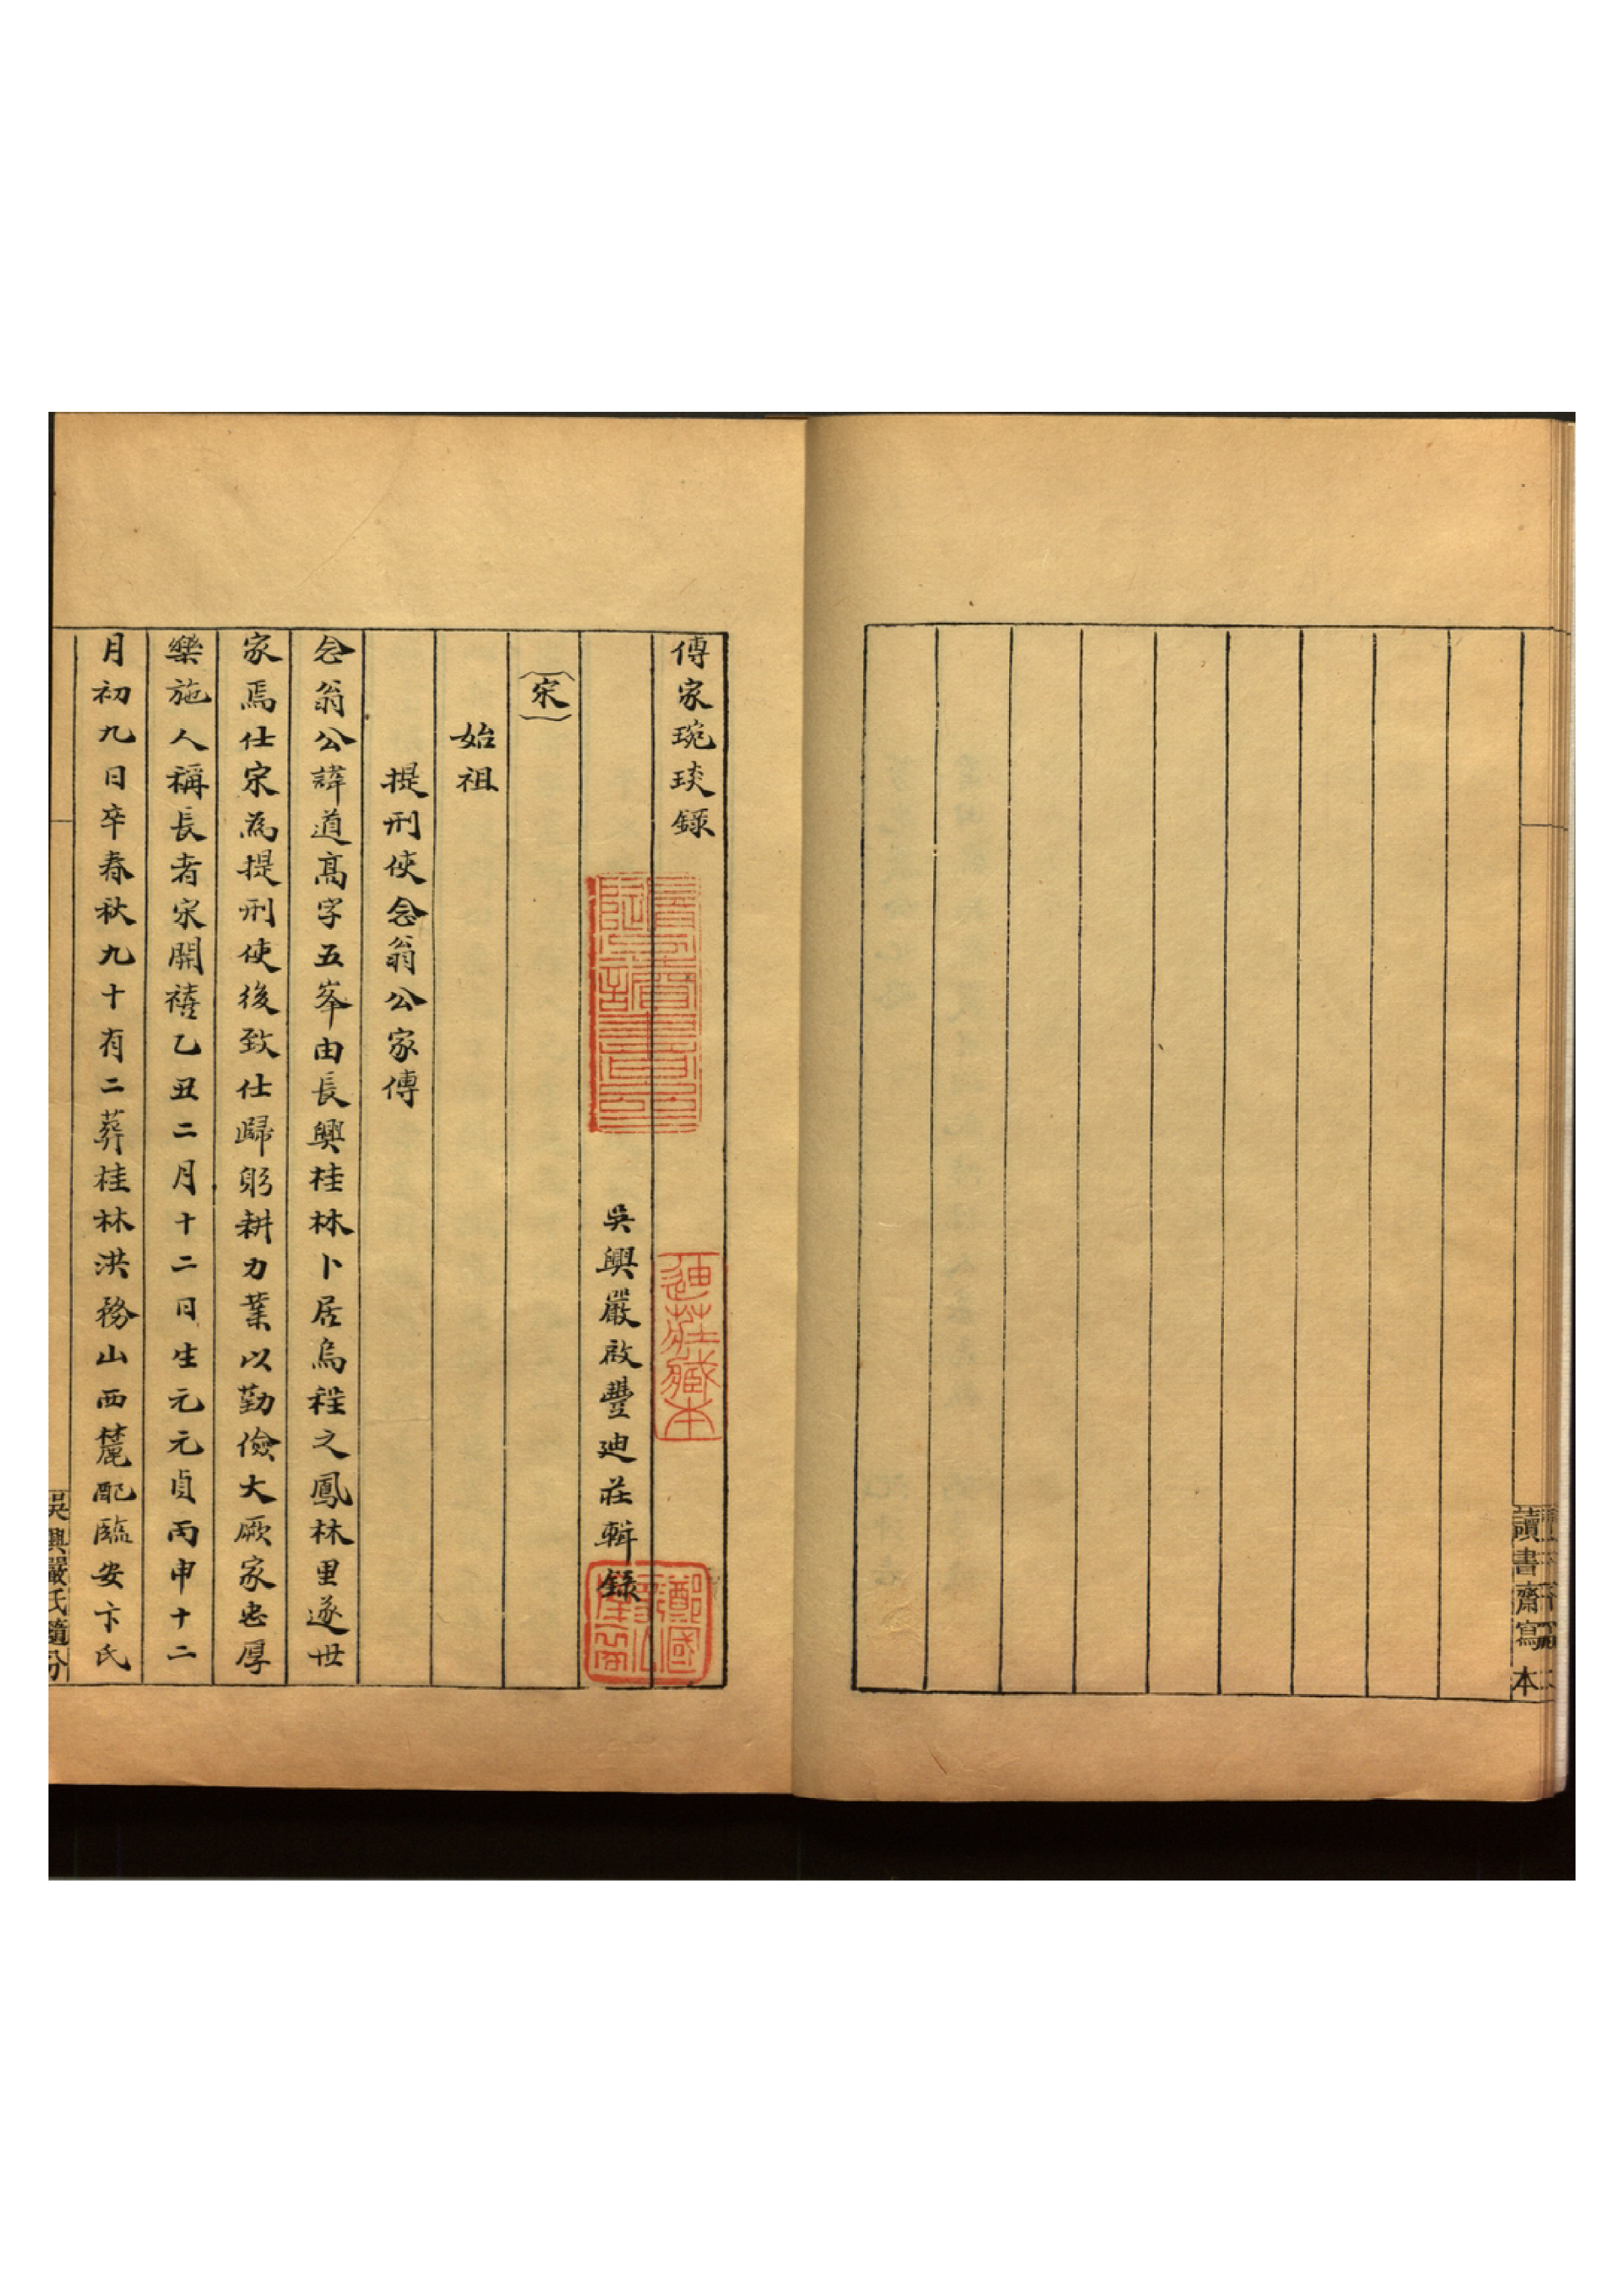 讀書齋寫本
傳家琬琰錄
吳興嚴啟豐廸莊輯錄
宋
始祖
提刑使念翁公家傳
念翁公諱道高字五峯由長興桂林卜居烏程之鳳林里遂世
家焉仕宋為提刑使後致仕歸躬耕力業以勤儉大厥家忠厚
樂施人稱長者宋開禧乙丑二月十二日生元元貞丙申十二
月初九日卒春秋九十有二葬桂林洪務山西麓配臨安卞氏
吳興嚴氏隨分
廸莊藏本